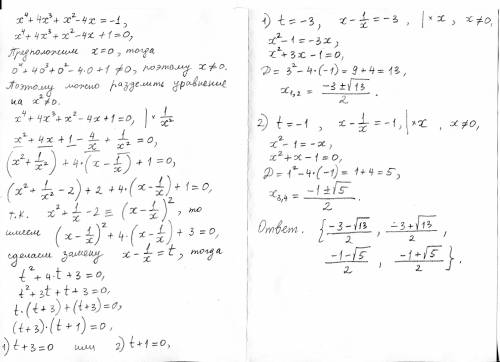 x⁴+4x³+x²-4x=-1,
x⁴+4x³+x²-4x+1=0,
Предположим x=0, тогда
0⁴+4·0³+0²-4·0+1≠0, поэтому x≠0.
Поэтому можно разделить уравнение
на x²≠0.
x⁴+4x³+x²-4x+1=0, | × 1/x²
x²+4x+1-4/x+1/x²=0,
(x²+1/x²)+4·(x-1/x)+1=0,
(x²+1/x²-2)+2+4·(x-1/x)+1=0,
т.к. x²+1/x²-2≡(x-1/x)², то
имеем (x-1/x)²+4·(x-1/x)+3=0,
сделаем замену x-1/x=t, тогда
t²+4·t+3=0,
t²+3t+t+3=0,
t·(t+3)+(t+3)=0,
(t+3)·(t+1)=0,
1) t+3=0 или 2) t+1=0,
1) t=-3, x-1/x=-3, | ×x, x≠0,
x²-1=-3x,
x²+3x-1=0,
D=3²-4·(-1)=9+4=13,
x₁,₂=(-3±√13)/2.
2) t=-1, x-1/x=-1, | ×x, x≠0,
x²-1=-x,
x²+x-1=0,
D=1²-4·(-1)=1+4=5,
x₃,₄=(-1±√5)/2.
Ответ. {(-3-√13)/2, (-3+√13)/2,
(-1-√5)/2, (-1+√5)/2}.